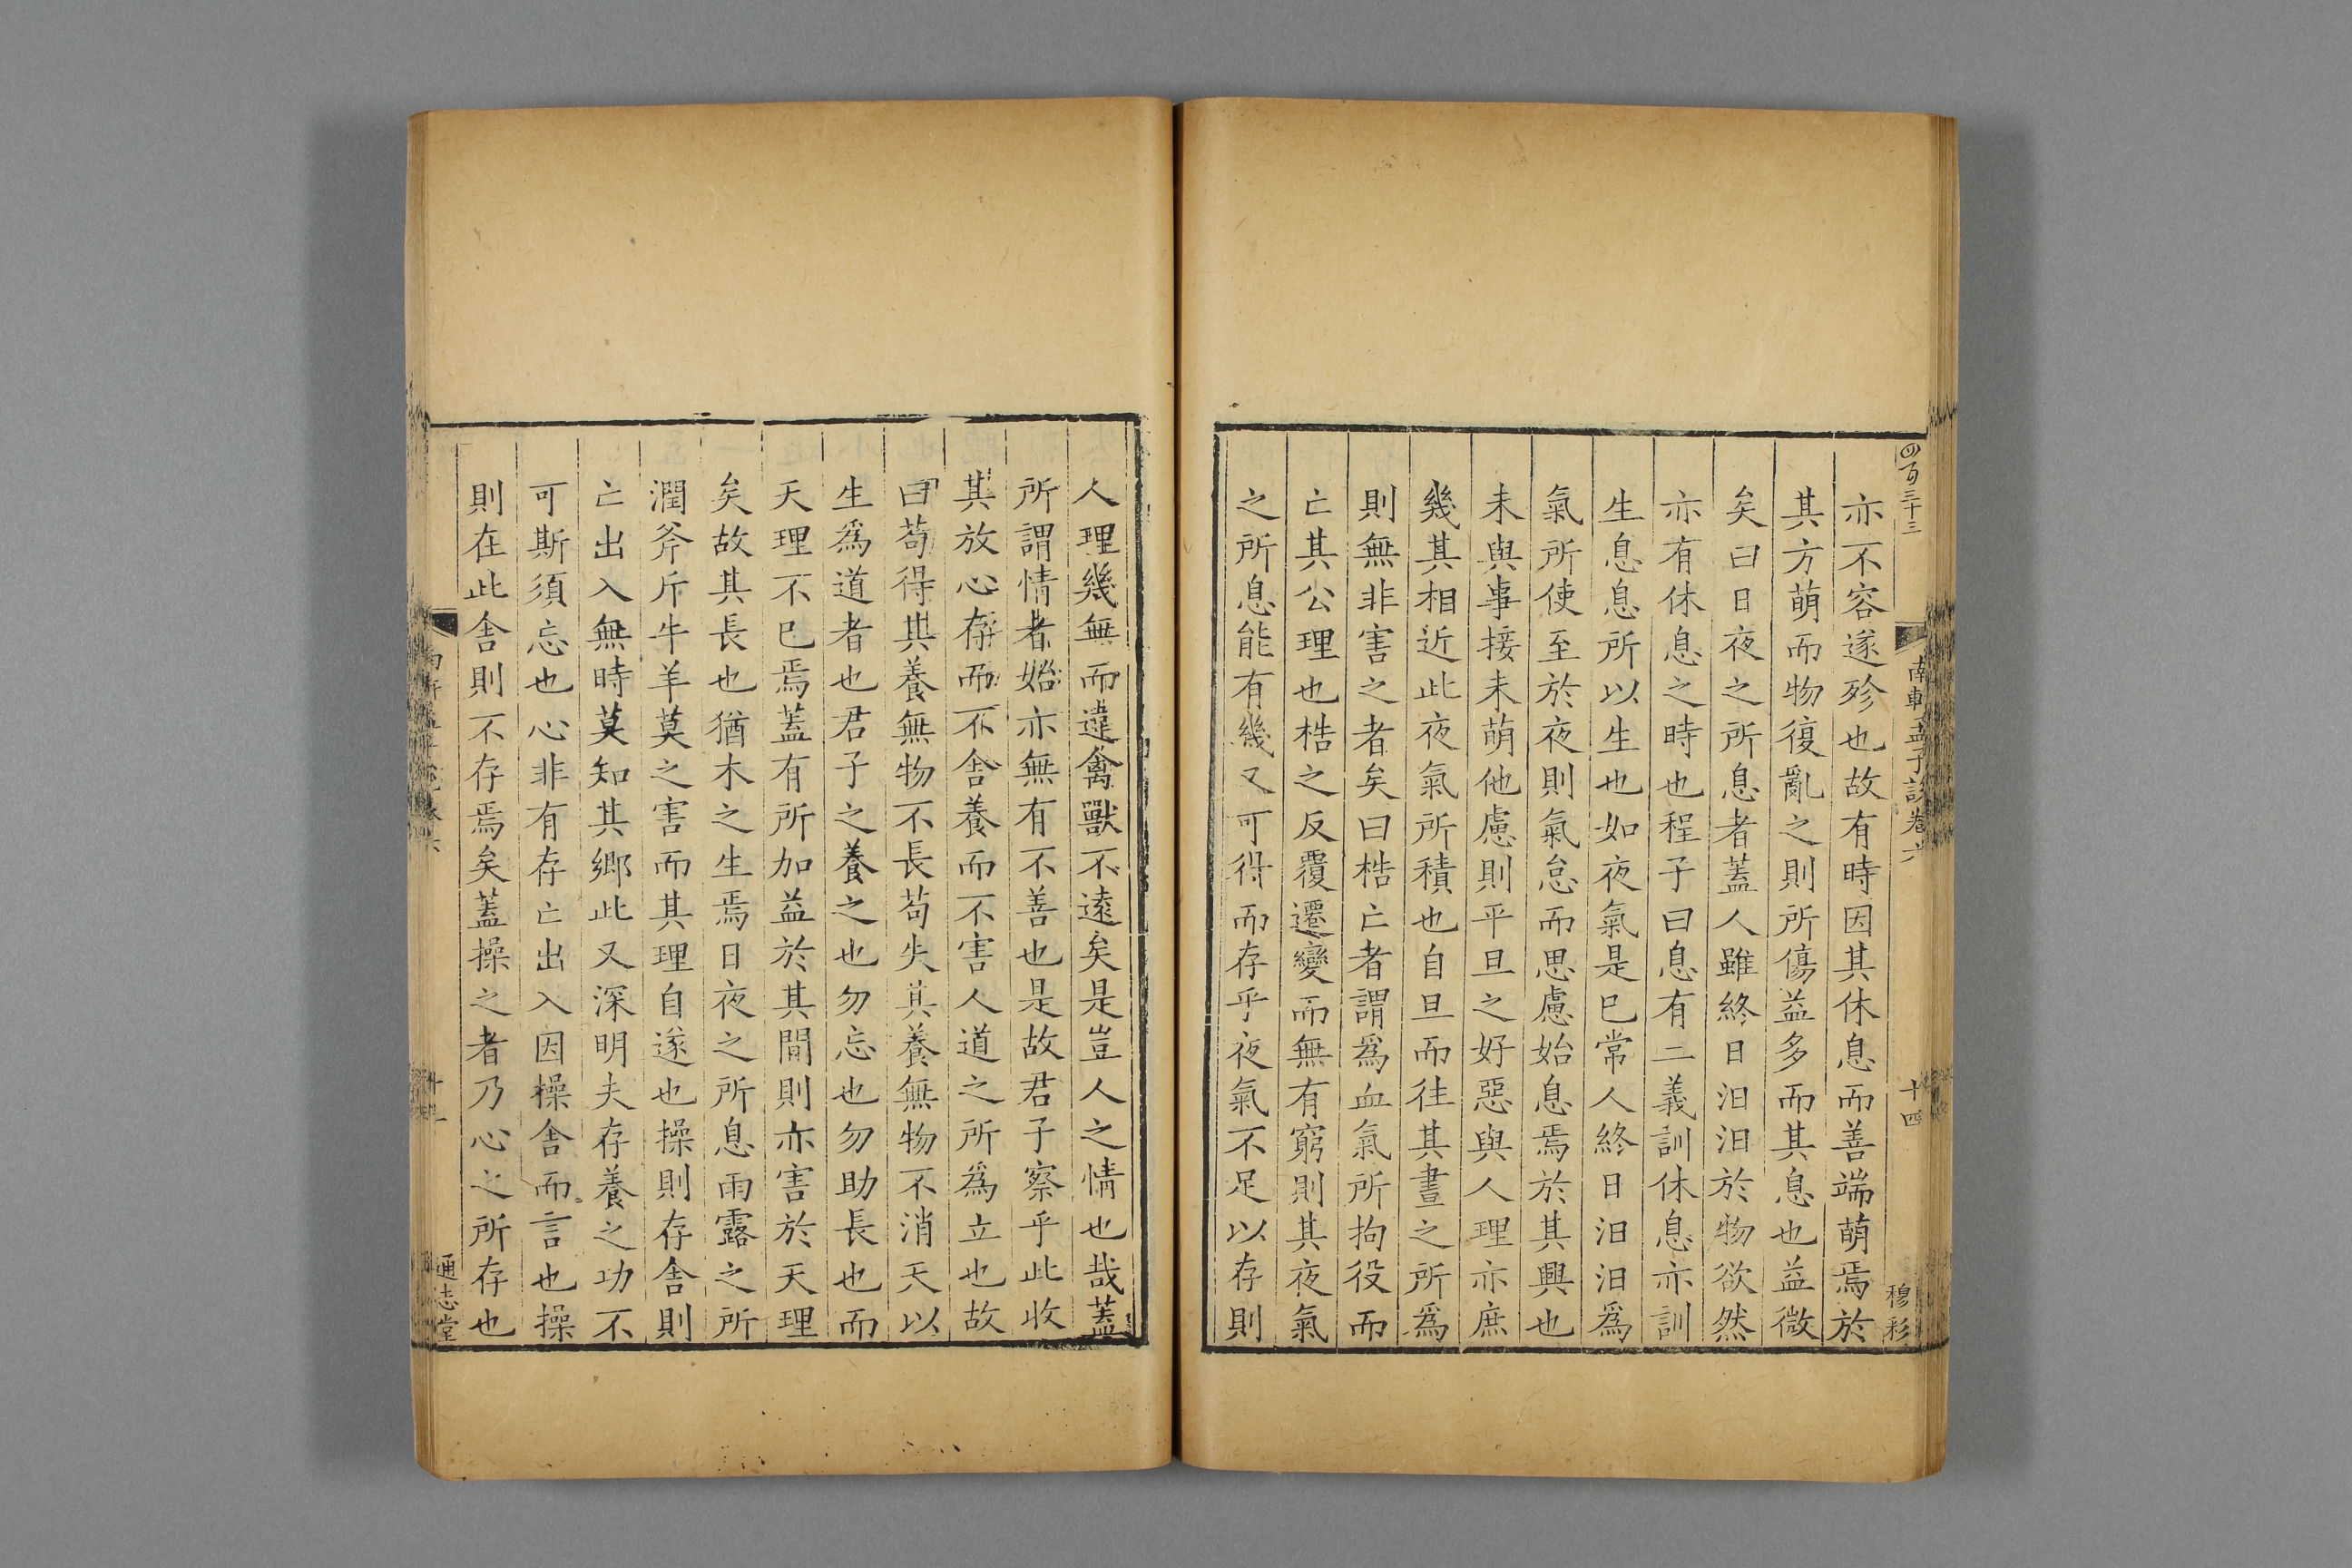 四百三十三
南軒孟子說卷六
十四
穆彩
亦不容遂殄也故有時因其休息而善端萌焉於
其方萌而物復亂之則所傷益多而其息也益微
矣曰日夜之所息者蓋人雖終日汩汩於物欲然
亦有休息之時也程子曰息有二義訓休息亦訓
生息息所以生也如夜氣是巳常人終日汩汩爲
氣所使至於夜則氣怠而思慮始息焉於其興也
未與事接未萌他慮則平旦之好惡與人理亦庶
幾其相近此夜氣所積也自旦而往其晝之所爲
則無非害之者矣曰梏亡者謂爲血氣所拘役而
亡其公理也梏之反覆遷變而無有窮則其夜氣
之所息能有幾又可得而存乎夜氣不足以存則
人理幾無而違禽獸不遠矣是豈人之情也哉蓋
所謂情者始亦無有不善也是故君子察乎此收
其放心存而不舍養而不害人道之所爲立也故
曰苟得其養無物不長苟失其養無物不消天以
生爲道者也君子之養之也勿忘也勿助長也而
天理不巳焉蓋有所加益於其間則亦害於天理
矣故其長也猶木之生焉日夜之所息雨露之所
潤斧斤牛羊莫之害而其理自遂也操則存舍則
亡出入無時莫知其鄉此又深明夫存養之功不
可斯須忘也心非有存亡出入因操舍而言也操
則在此舍則不存焉矣蓋操之者乃心之所存也
通志堂